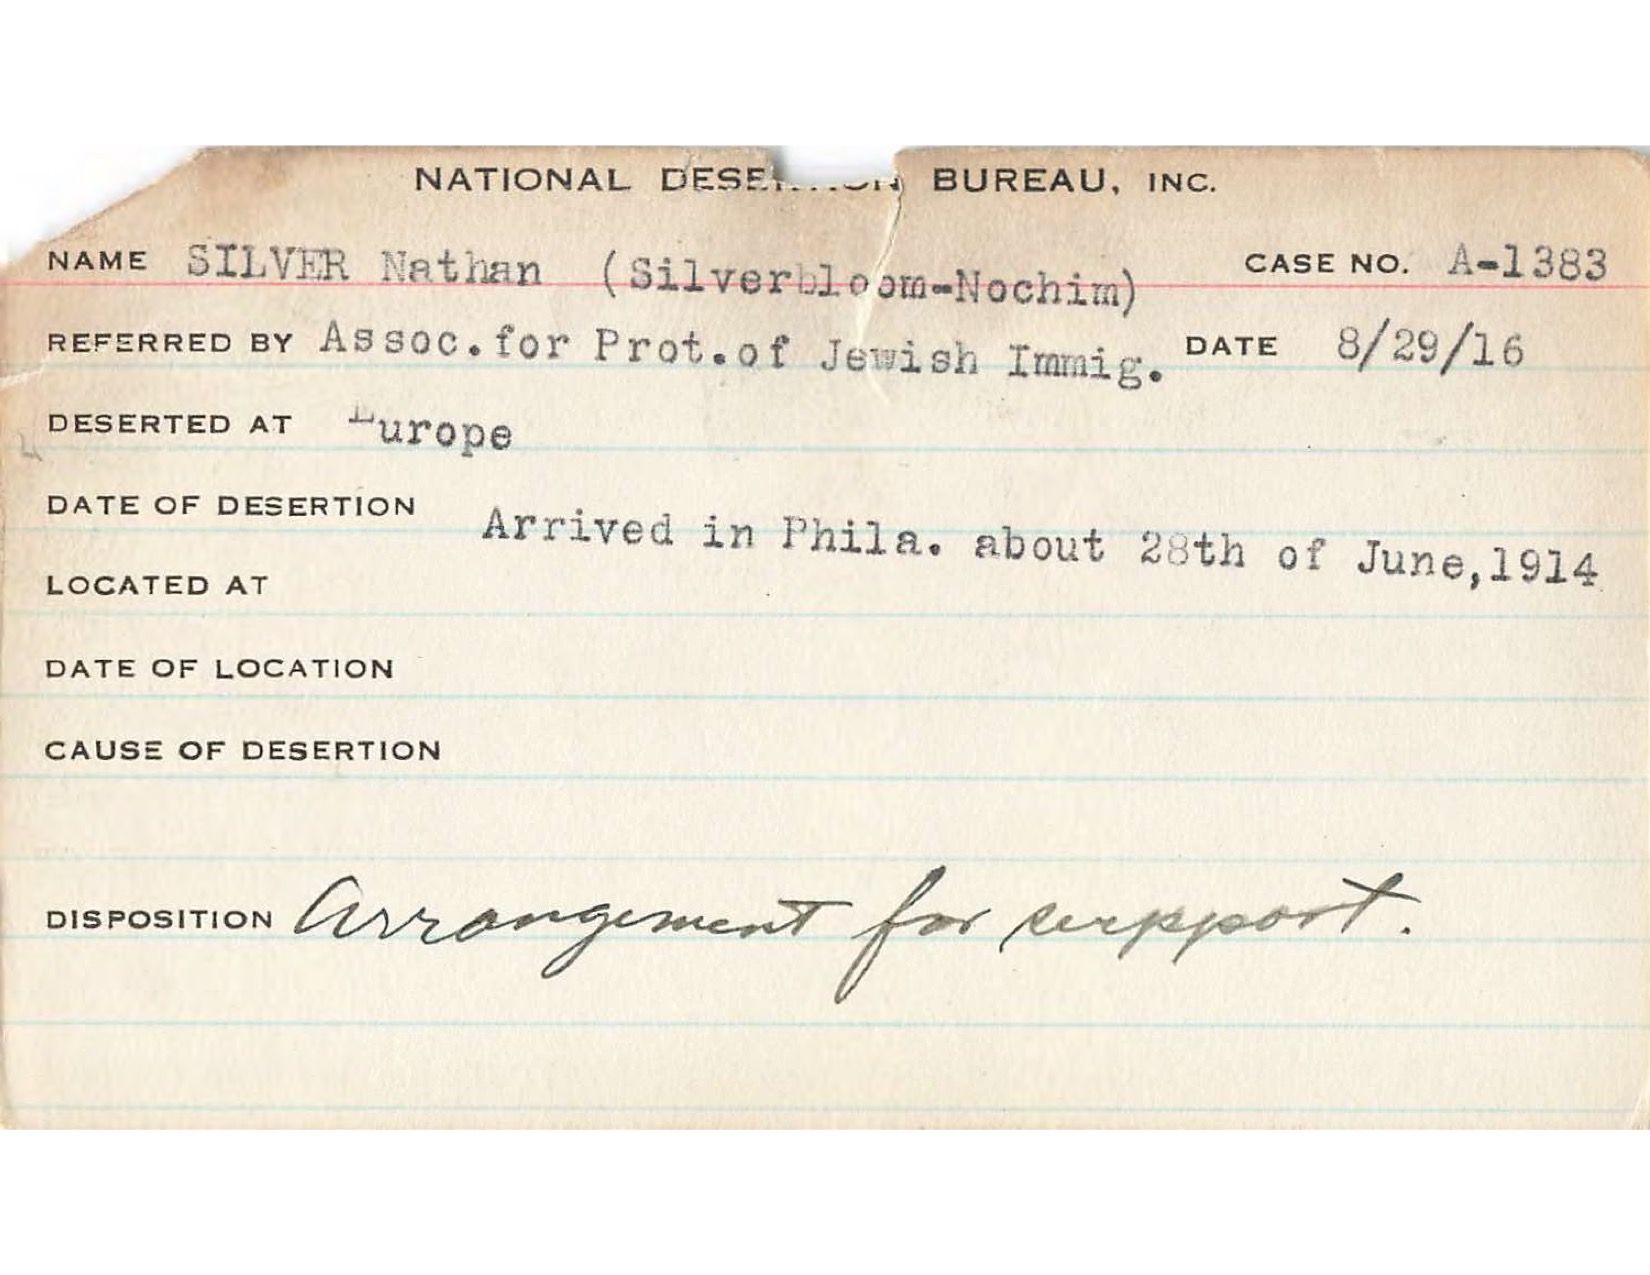 NATIONAL DESERTION BUREAU, INC.
NAME SILVER Nathan (Silverbloom-Nochim) CASE NO. A-1383
REFERRED BY Assoc.for Prot.of Jewish Immig. DATE 8/29/16
DESERTED AT Europe
DATE OF DESERTION Arrived in Phila. about 28th of June,1914
LOCATED AT
DATE OF LOCATION
CAUSE OF DESERTION
DISPOSITION Arrangement for support.